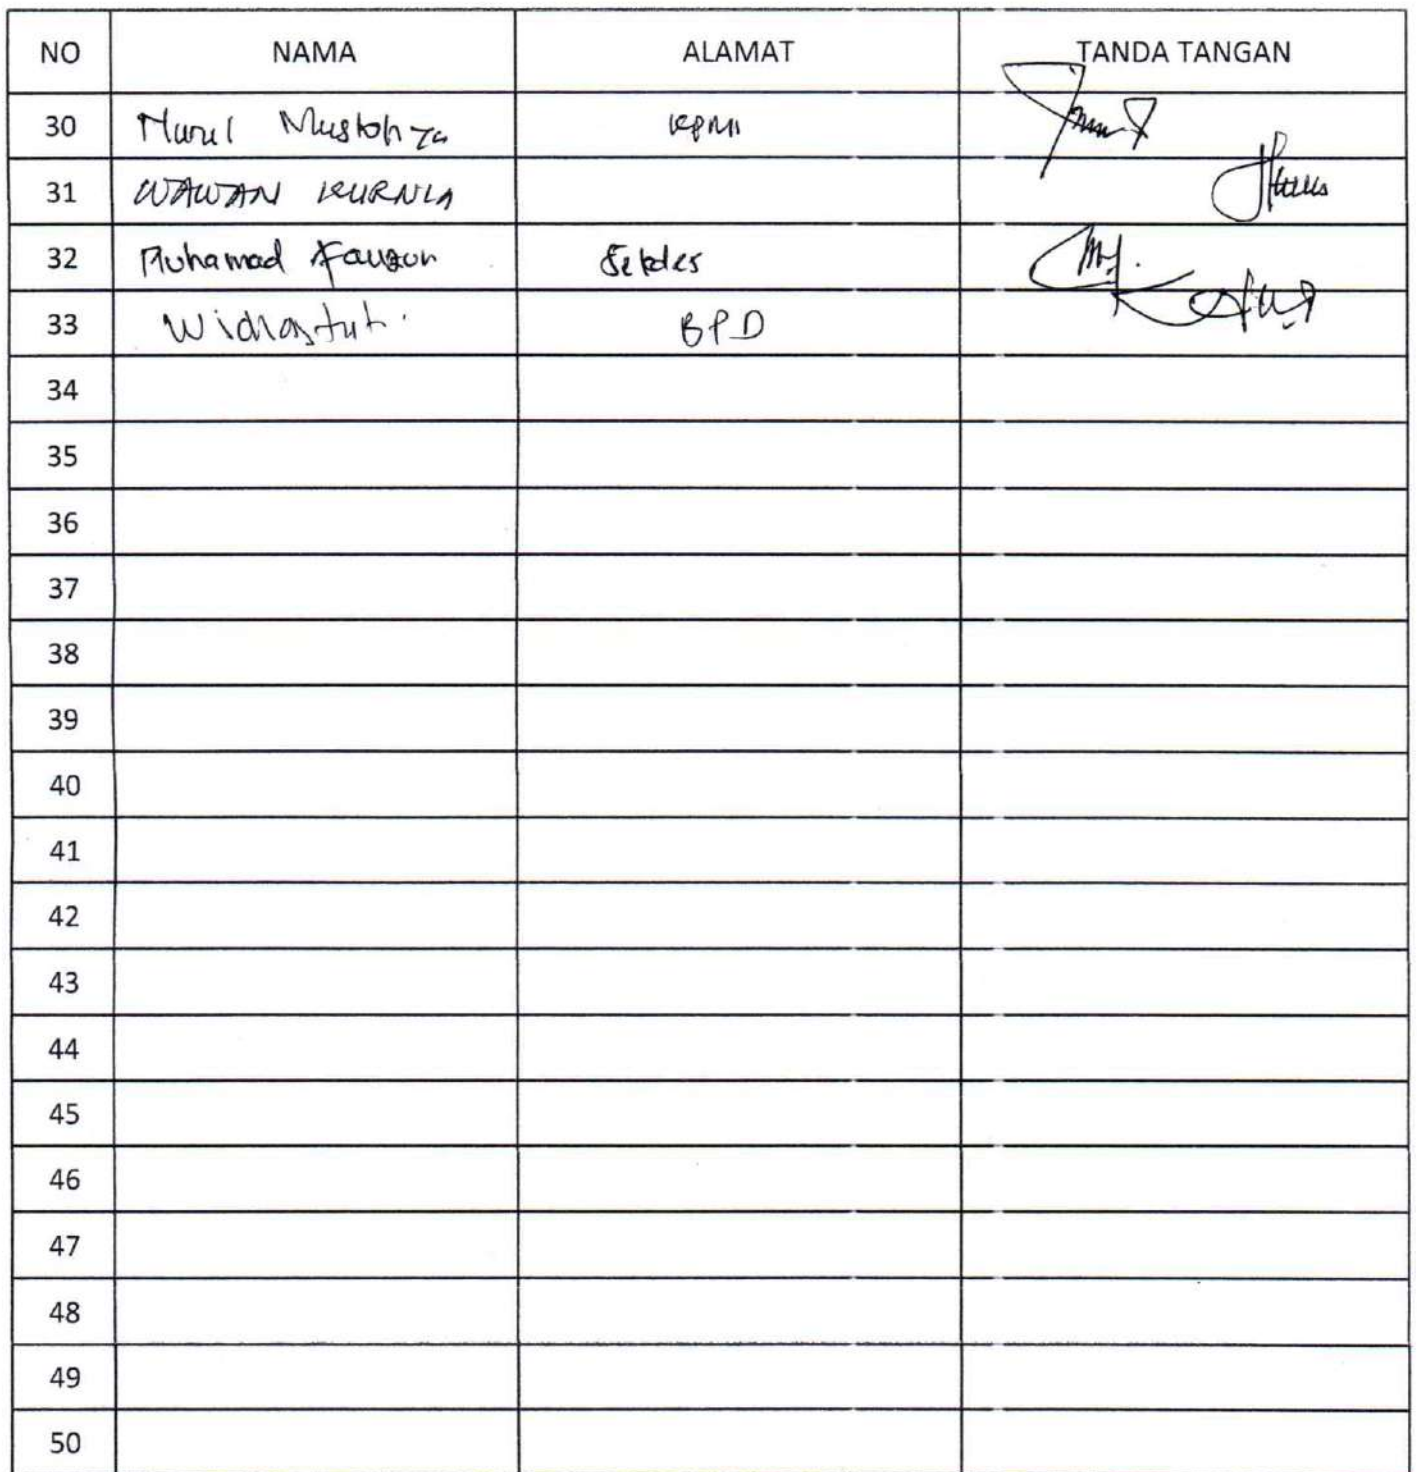 NO NAMA ALAMAT TANDA TANGAN
30 Nurul
31 WAWAN KURNIA
32 Muhamad Fauzan Sekdes
33 Widiastuti BPD
34
35
36
37
38
39
40
41
42
43
44
45
46
47
48
49
50